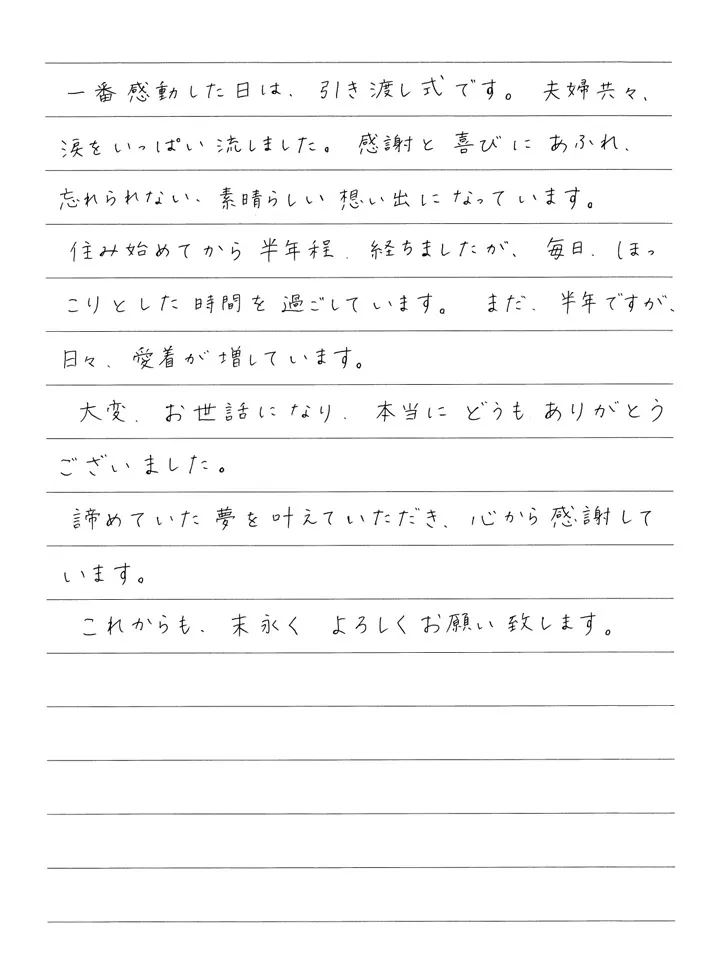 一番感動した日は、引き渡し式です。夫婦共々、
涙をいっぱい流しました。感謝と喜びにあふれ、
忘れられない、素晴らしい想い出になっています。
住み始めてから半年程、経ちましたが、毎日、ほっ
こりとした時間を過ごしています。まだ、半年ですが、
日々、愛着が増しています。
大変、お世話になり、本当にどうもありがとう
ございました。
諦めていた夢を叶えていただき、心から感謝して
います。
これからも、末永くよろしくお願い致します。